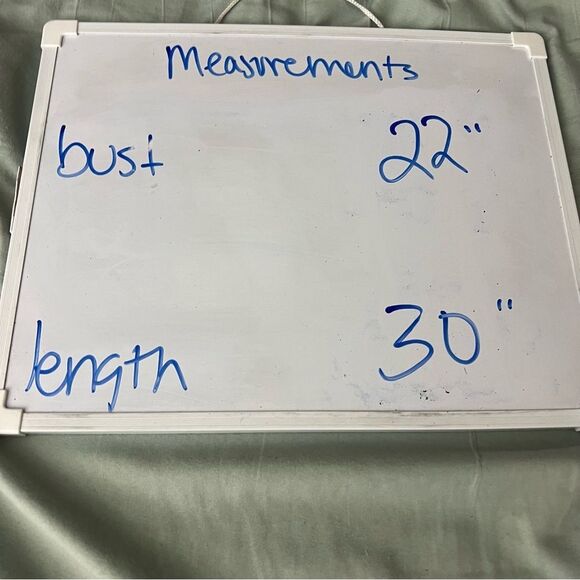 Measurements
bust 22"
length 30"